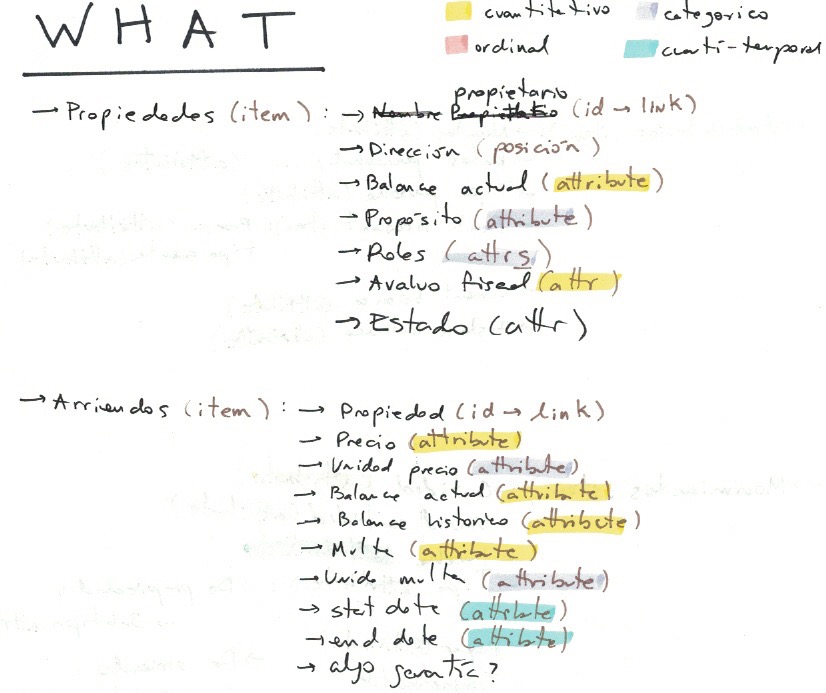 WHAT
cuantitativo
categorico
ordinal
cuanti-temporal
→ Propiedades (item) : → ~~Nombre Propietario~~ propietario (id → link)
→ Dirección (posición)
→ Balance actual (attribute)
→ Propósito (attribute)
→ Roles (attrs)
→ Avaluo fiscal (attr)
→ Estado (attr)
→ Arriendos (item) : → Propiedad (id → link)
→ Precio (attribute)
→ Unidad precio (attribute)
→ Balance actual (attribute)
→ Balance historico (attribute)
→ Multa (attribute)
→ Unida multa (attribute)
→ start date (attribute)
→ end date (attribute)
→ algo garantía?